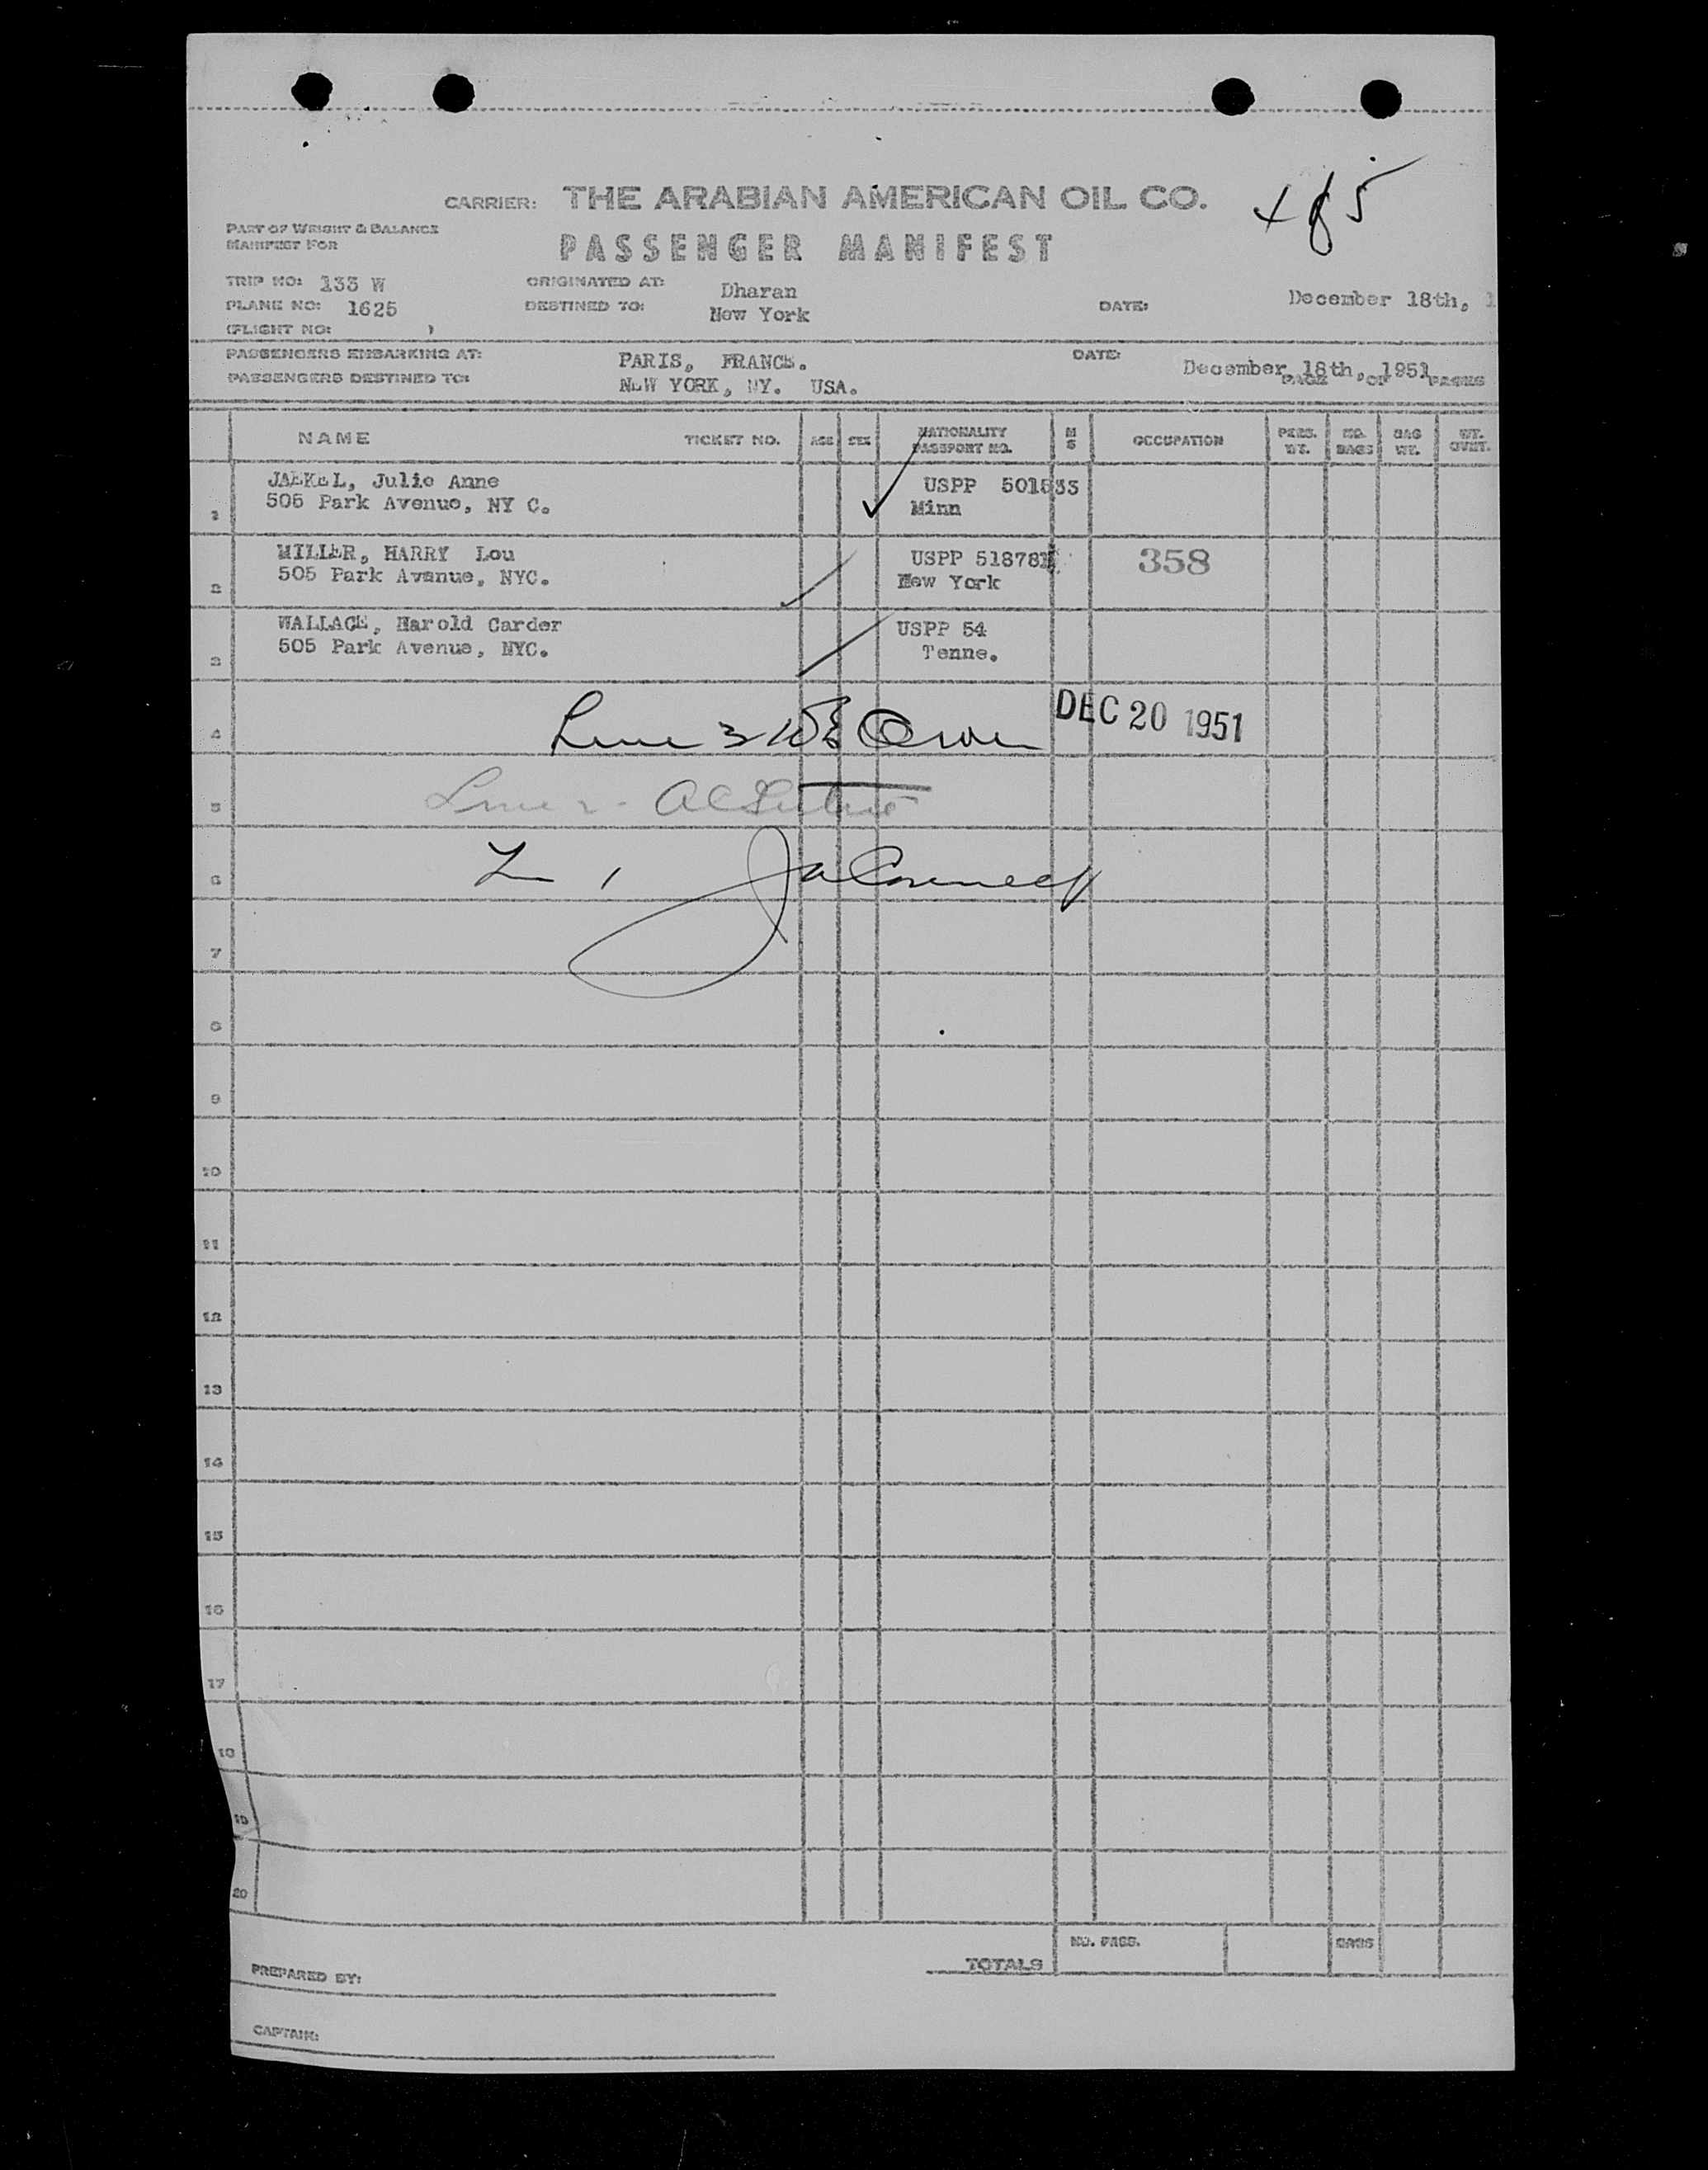 4 of 5
CARRIER: THE ARABIAN AMERICAN OIL CO.
PART OF WEIGHT & BALANCE
MANIFEST FOR
PASSENGER MANIFEST
TRIP NO: 133 W
ORIGINATED AT: Dharan
PLANE NO: 1625
DESTINED TO: New York
DATE: December 18th, 1
(FLIGHT NO: )
PASSENGERS EMBARKING AT: PARIS, FRANCE.
DATE: December 18th, 1951
PASSENGERS DESTINED TO: NEW YORK, NY. USA.
PAGE OF PAGES
NAME TICKET NO. AGE SEX NATIONALITY PASSPORT NO. M S OCCUPATION PERS. WT. NO. BAGS BAG WT.
1 JAEKEL, Julie Anne USPP 501533
505 Park Avenue, NY C. Minn
2 MILLER, HARRY Lou USPP 518781 358
505 Park Avenue, NYC. New York
3 WALLACE, Harold Carder USPP 54
505 Park Avenue, NYC. Tenne.
4 Line 3 Owen DEC 20 1951
5 Line 2
6 L 1
7
8
9
10
11
12
13
14
15
16
17
18
19
20
TOTALS NO. PASS. BAGS
PREPARED BY:
CAPTAIN: